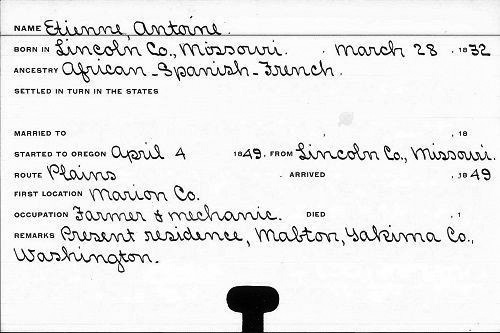 NAME Etienne, Antoine.
BORN IN Lincoln Co., Missouri. , March 28 , 1832
ANCESTRY African-Spanish-French.
SETTLED IN TURN IN THE STATES
MARRIED TO , , 18
STARTED TO OREGON April 4 1849, FROM Lincoln Co., Missouri.
ROUTE Plains . ARRIVED , , 1849
FIRST LOCATION Marion Co.
OCCUPATION Farmer & mechanic. DIED , , 1
REMARKS Present residence, Mabton, Yakima Co.,
Washington.